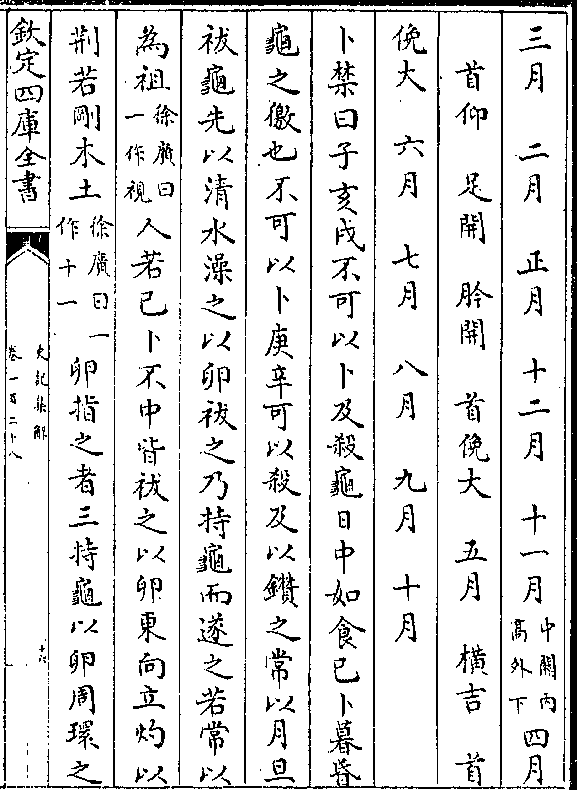 三月 二月 正月 十二月 十一月中關内高外下四月
首仰 足開 肣開 首俛大 五月 横吉 首
俛大 六月 七月 八月 九月 十月
卜禁曰子亥戌不可以卜及殺龜日中如食已卜暮昏
龜之徼也不可以卜庚辛可以殺及以鑽之常以月旦
祓龜先以清水澡之以卵祓之乃持龜而遂之若常以
為祖徐廣曰一作視人若已卜不中皆祓之以卵東向立灼以
荆若剛木土徐廣曰一作十一卵指之者三持龜以卵周環之
欽定四庫全書
史記集解
卷一百二十八